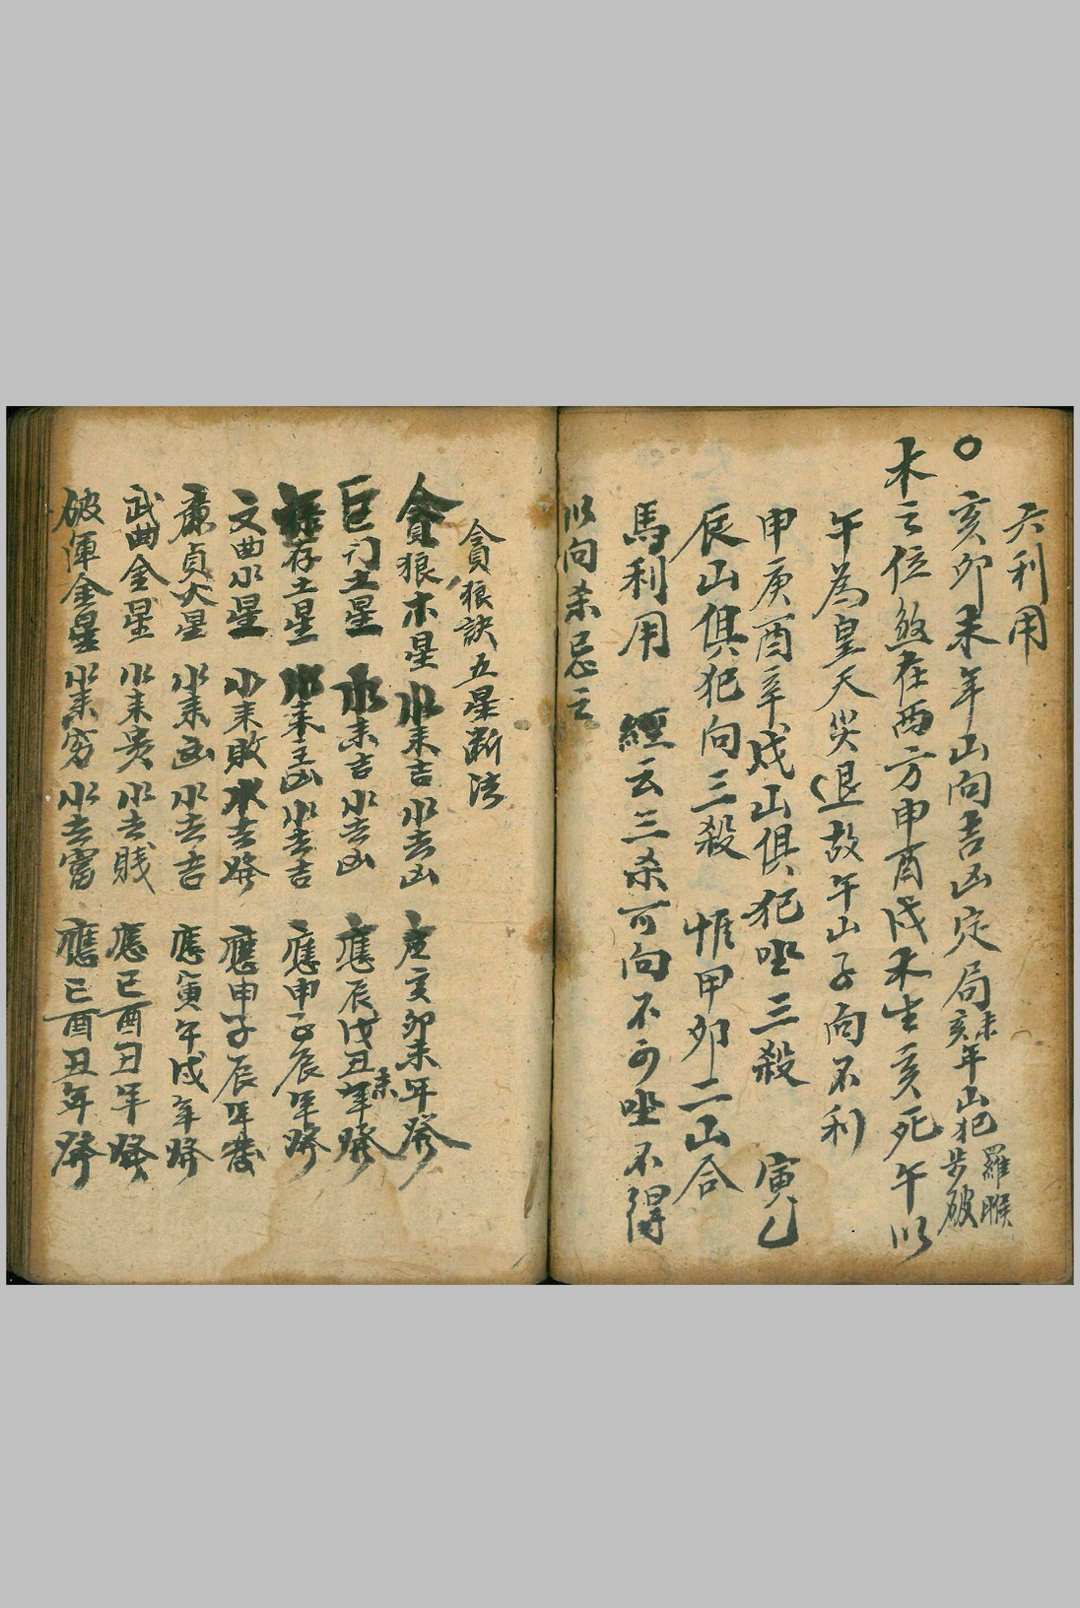 六利用
〇亥卯未年山向吉凶定局 未亥年山犯 羅睺 步破
木之位煞在西方申酉戌木生亥死午以
午為皇天災退故午山子向不利
申庚酉辛戌山俱犯坐三殺 寅乙
辰山俱犯向三殺 惟甲卯二山合
馬利用 經云三杀可向不可坐不得
以向杀忌之
貪狼訣五星斷法
貪狼木星 水来吉水去凶 應亥卯未年發
巨门土星 水来吉水去凶 應辰戌丑未年發
禄存土星 水来主凶水去吉 應申子辰年發
文曲水星 水来敗水去發 應申子辰年發
廉貞火星 水来凶水去吉 應寅午戌年發
武曲金星 水来贵水去賤 應巳酉丑年發
破軍金星 水来穷水去富 應巳酉丑年發